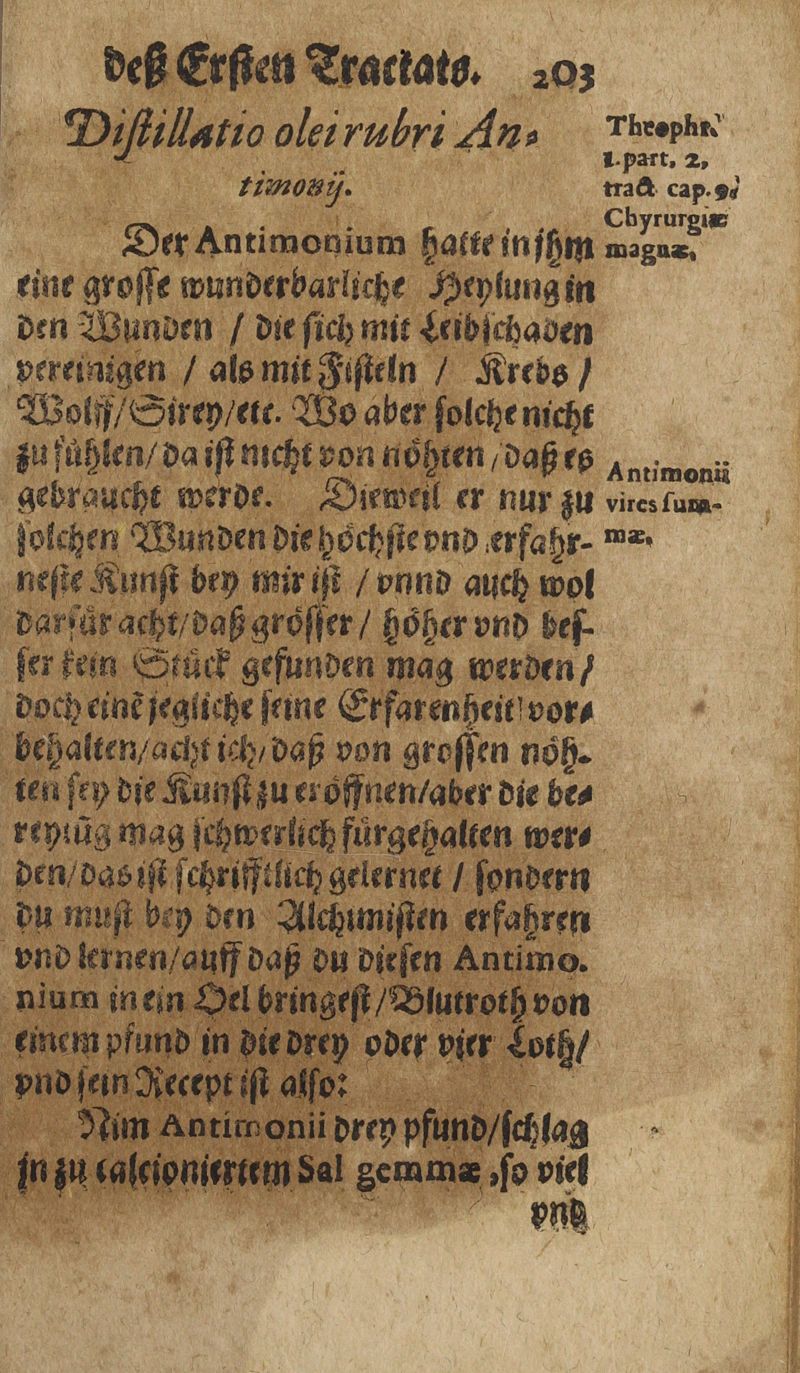 deß Ersten Tractats. 203
Distillatio olei rubri An-
timonij.
Der Antimonium hatte in jhm
eine grosse wunderbarliche Heylung in
den Wunden / die sich mit Leibschaden
vereinigen / als mit Fisteln / Krebs /
Wolff/Sirey/etc. Wo aber solche nicht
zu fühlen/ da ist nicht von nöhten / daß es
gebraucht werde. Dieweil er nur zu
solchen Wunden die höchste vnd erfahr-
neste Kunst bey mir ist / vnnd auch wol
darfür acht/daß grösser / höher vnd bes-
ser kein Stück gefunden mag werden /
doch einē jegliche seine Erfarenheit vor-
behalten/acht ich/daß von grossen nöh-
ten sey die Kunst zu eröffnen/aber die be-
reytūg mag schwerlich fürgehalten wer-
den/das ist schrifftlich gelernet / sondern
du must bey den Alchimisten erfahren
vnd lernen/auff daß du diesen Antimo-
nium in ein Oel bringest/Blutroth von
einem pfund in die drey oder vier Loth/
vnd sein Recept ist also:
Nim Antimonii drey pfund/schlag
jn zu calcioniertem Sal gemmæ, so viel
vnd
Theophr.
1. part. 2,
tract. cap. 9.
Chyrurgiæ
magnæ,
Antimonii
vires sum-
mæ.